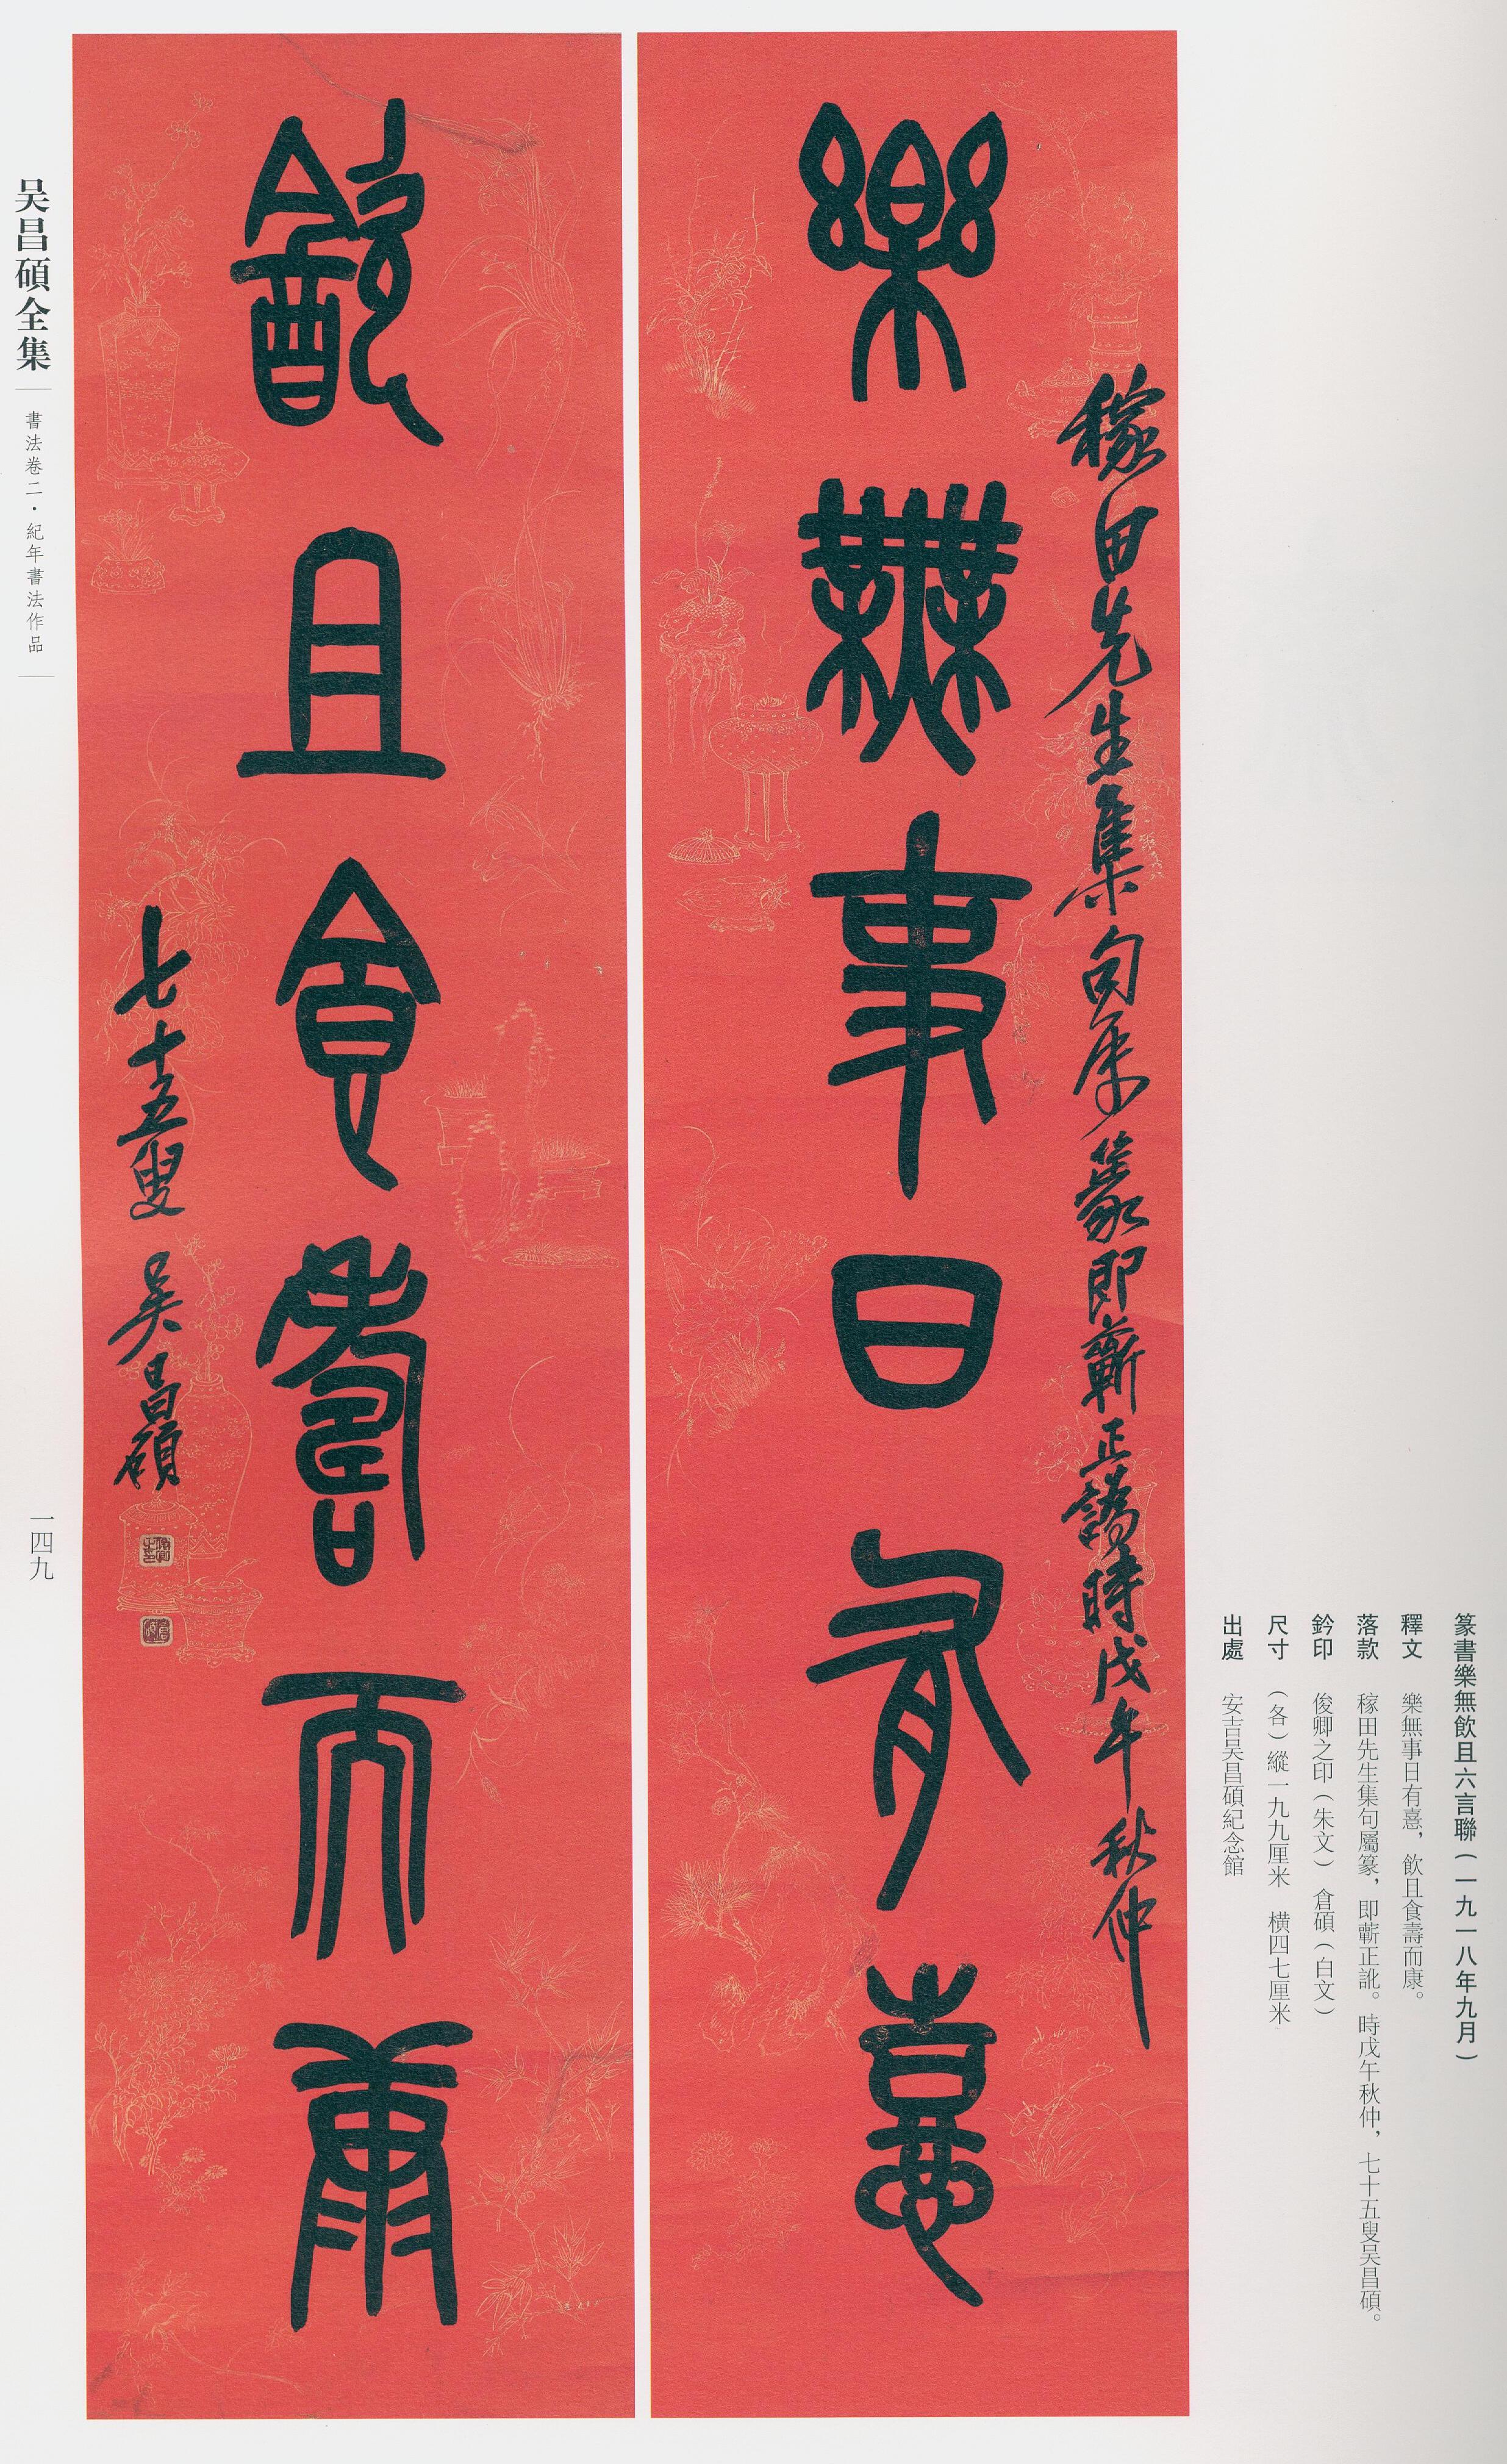 樂無事日有憙
稼田先生集句屬篆即蘄正譌時戊午秋仲
飲且食壽而康
七十五叟吴昌碩
俊卿之印
倉碩
篆書樂無飲且六言聯（一九一八年九月）
釋文　樂無事日有憙，飲且食壽而康。
落款　稼田先生集句屬篆，即蘄正訛。時戊午秋仲，七十五叟吴昌碩。
鈐印　俊卿之印（朱文）　倉碩（白文）
尺寸　（各）縱一九九厘米　橫四七厘米
出處　安吉吴昌碩紀念館
吴昌碩全集
書法卷二・紀年書法作品
一四九